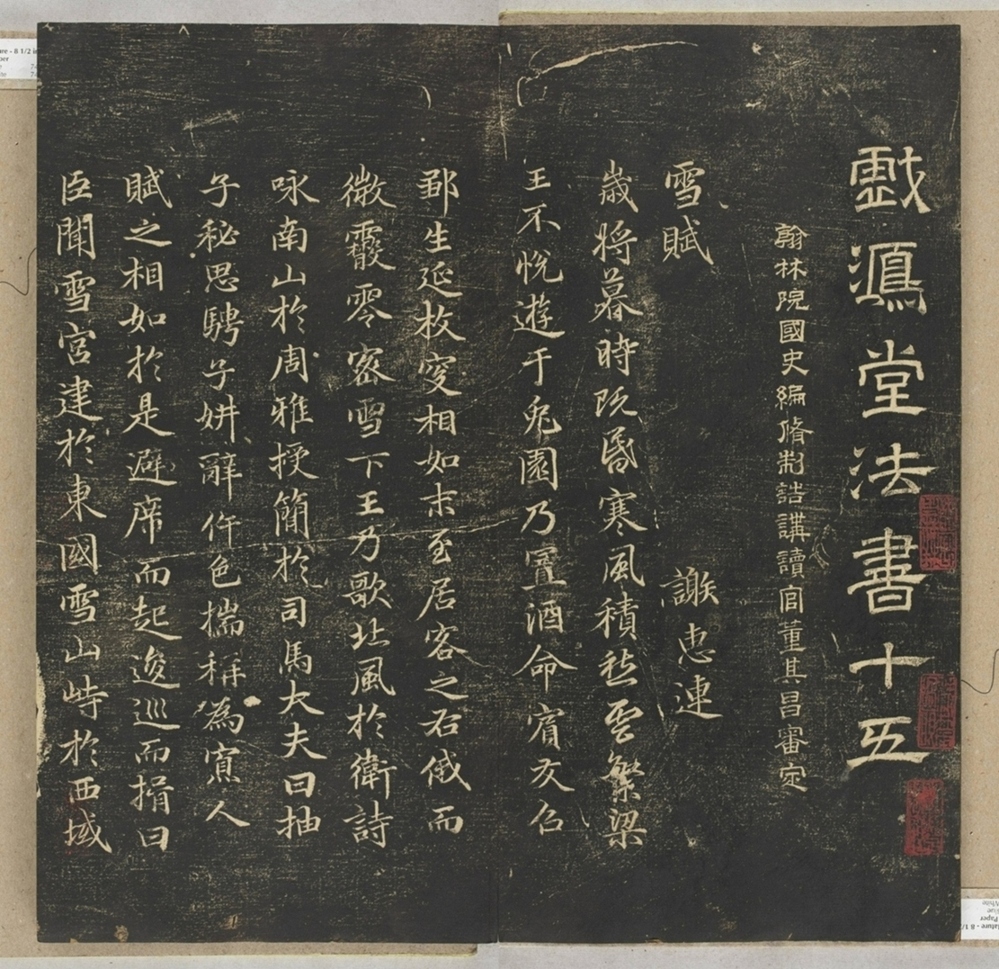 戲鴻堂法書十五
翰林院國史編脩制誥講讀官董其昌審定
雪賦 謝惠連
歲將暮時既昏寒風積愁雲繁梁
王不悅遊于兔園乃置酒命賓友召
鄒生延枚叟相如末至居客之右俄而
微霰零密雪下王乃歌北風於衛詩
咏南山於周雅授簡於司馬大夫曰抽
子秘思騁子妍辭侔色揣稱為寡人
賦之相如於是避席而起逡巡而揖曰
臣聞雪宮建於東國雪山峙於西域